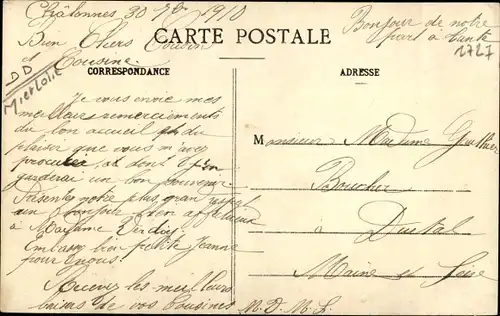 Châlonnes 30 1910
Bonjour de notre
part à tante
1727
Bien Chers Cousin
et
Cousine
CARTE POSTALE
CORRESPONDANCE
ADRESSE
Je vous envoie mes
meilleurs remerciements
du bon accueil et du
plaisir que vous m'avez
procurer et dont j'en
garderai un bon souvenir
Présentez notre plus grand respect
un bonjour bien affectueux
à Madame Verdier
Embassez bien petite Jeanne
pour nous
Recevez les meilleurs
baisers de vos Cousines
Monsieur Madame
Boucher
Durtal
Maine et Loire
M. D. M. L.